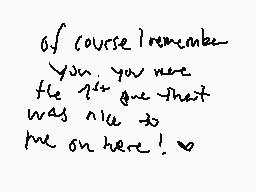 of course I remember
you. you were
the 1st one that
was nice to
me on here! ♥